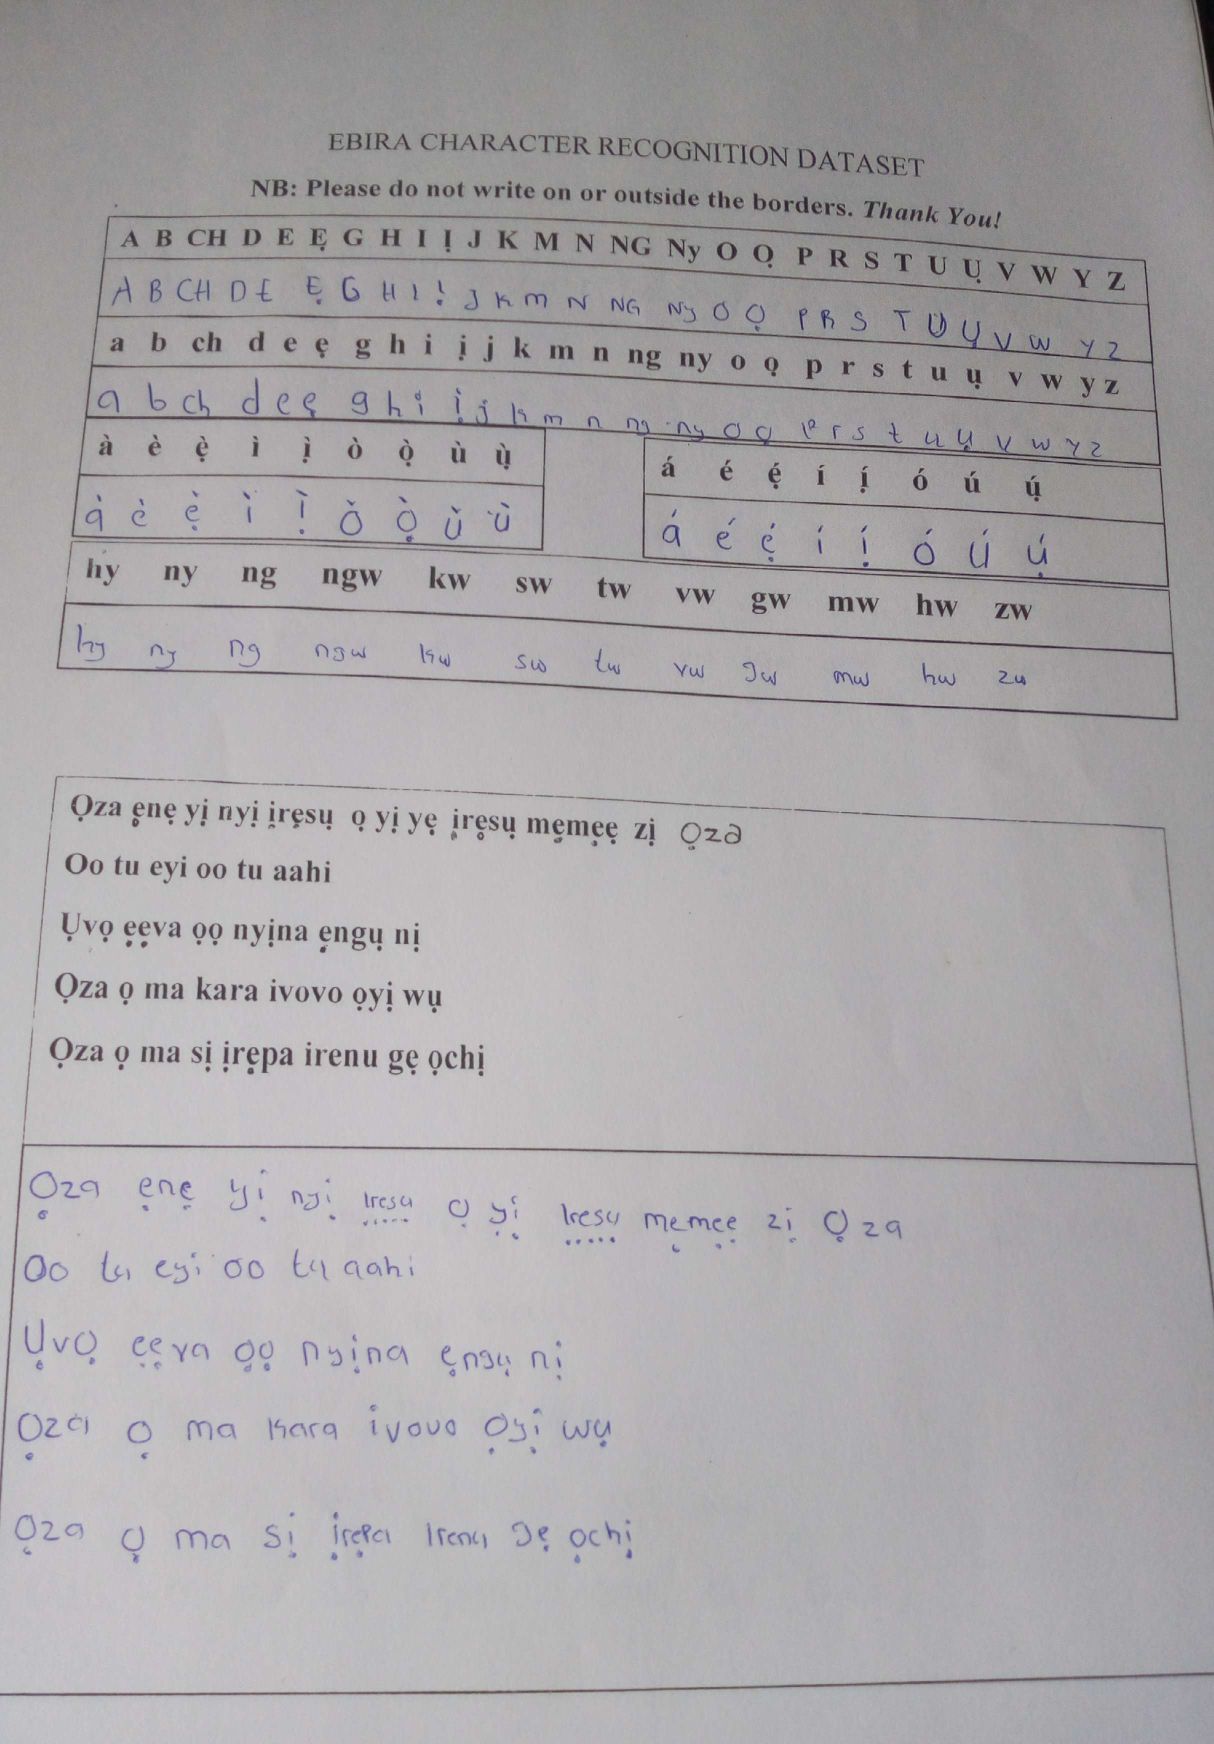 EBIRA CHARACTER RECOGNITION DATASET
NB: Please do not write on or outside the borders. Thank You!
A B CH D E Ẹ G H I Ị J K M N NG Ny O Ọ P R S T U Ụ V W Y Z
A B CH D E Ẹ G H I Ị J K M N NG Ny O Ọ P R S T U Ụ V W Y Z
a b ch d e ẹ g h i ị j k m n ng ny o ọ p r s t u ụ v w y z
a b ch d e ẹ g h i ị j k m n ng ny o ọ p r s t u ụ v w y z
à è ẹ̀ ì ị̀ ò ọ̀ ù ụ̀
à è ẹ̀ ì ị̀ ò ọ̀ ù ù
á é ẹ́ í ị́ ó ú ụ́
á é ẹ́ í ị́ ó ú ụ́
hy ny ng ngw kw sw tw vw gw mw hw zw
hy ny ng ngw kw sw tw vw gw mw hw zw
Ọza ẹnẹ yị nyị ịrẹsụ ọ yị yẹ ịrẹsụ mẹmẹẹ zị Ọza
Oo tu eyi oo tu aahi
Ụvọ ẹẹva ọọ nyịna ẹngụ nị
Ọza ọ ma kara ivovo ọyị wụ
Ọza ọ ma sị ịrẹpa irenu gẹ ọchị
Ọza ẹnẹ yị nyị ịṛẹṣụ ọ yị ịṛẹṣụ mẹmẹẹ zị Ọza
Oo tu eyi oo tu aahi
Ụvọ ẹẹva ọọ nyịna ẹngụ nị
Ọza ọ ma kara ivovo ọyị wụ
Ọza ọ ma sị ịrẹpa irenu gẹ ọchị